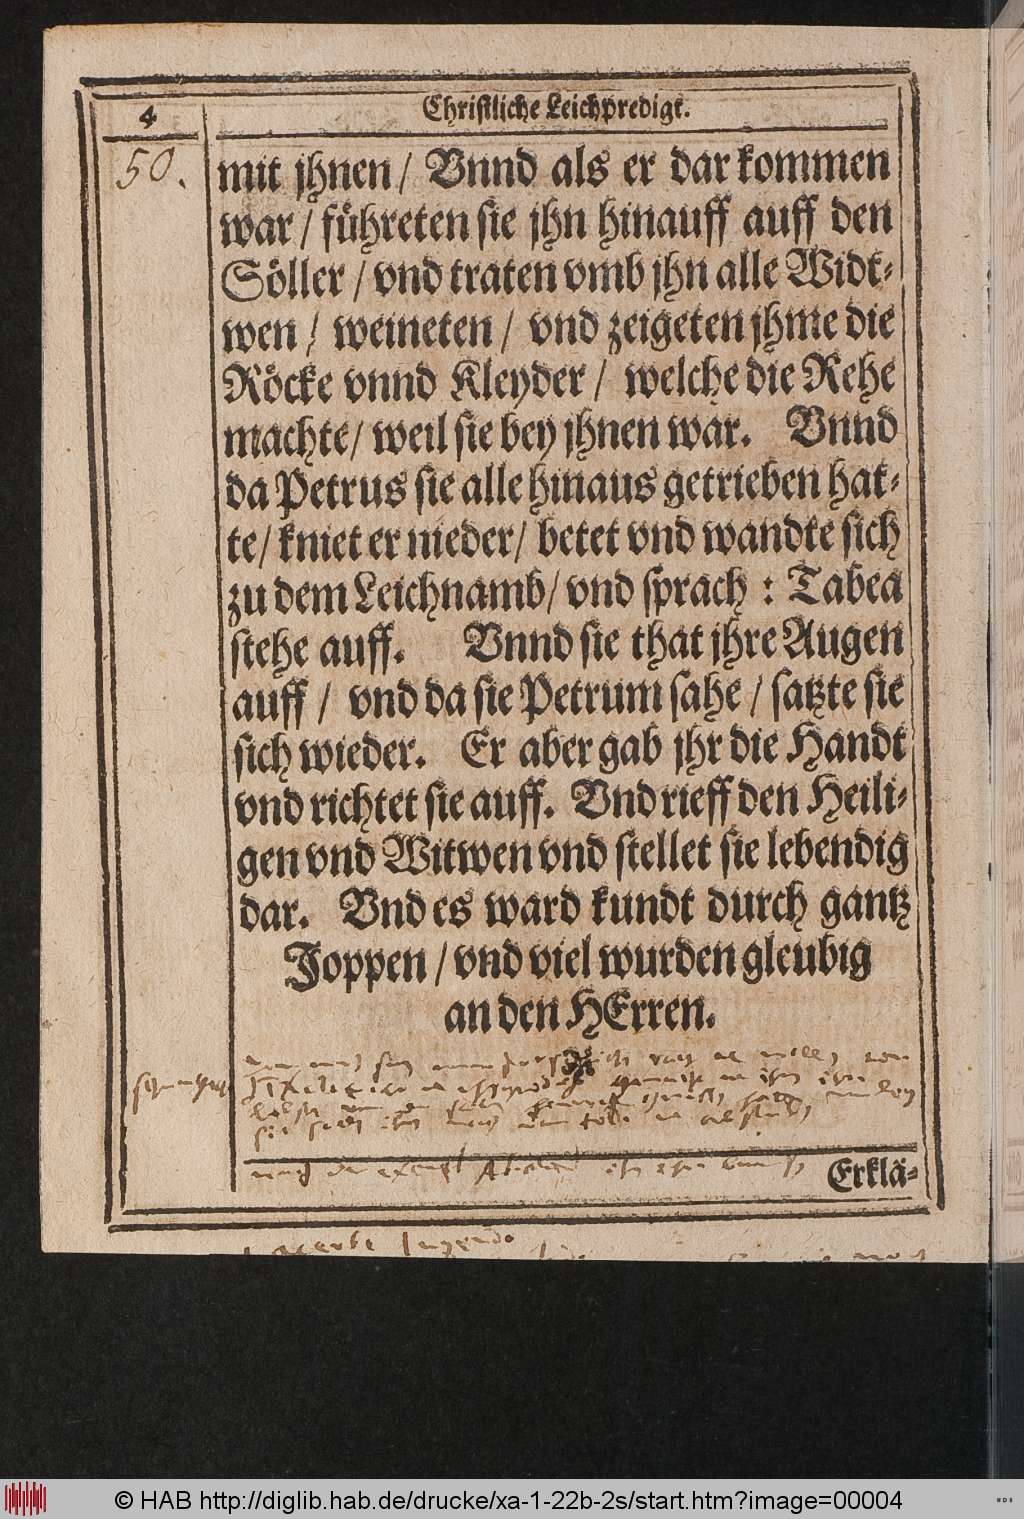 4
Christliche Leichpredigt.
50.
mit jhnen / Vnnd als er dar kommen
war / führeten sie jhn hinauff auff den
Söller / vnd traten vmb jhn alle Widt-
wen / weineten / vnd zeigeten jhme die
Röcke vnnd Kleyder / welche die Rehe
machte / weil sie bey jhnen war. Vnnd
da Petrus sie alle hinaus getrieben hat-
te / kniet er nieder / betet vnd wandte sich
zu dem Leichnamb / vnd sprach : Tabea
stehe auff. Vnnd sie that jhre Augen
auff / vnd da sie Petrum sahe / satzte sie
sich wieder. Er aber gab jhr die Handt
vnd richtet sie auff. Vnd rieff den Heili-
gen vnd Witwen vnd stellet sie lebendig
dar. Vnd es ward kundt durch gantz
Joppen / vnd viel wurden gleubig
an den HErren.
Erklä-
© HAB http://diglib.hab.de/drucke/xa-1-22b-2s/start.htm?image=00004